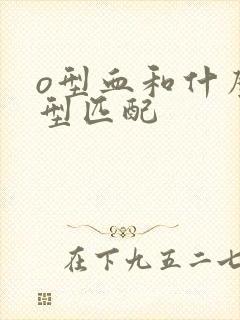 o型血和什
型匹配
在下九五二七